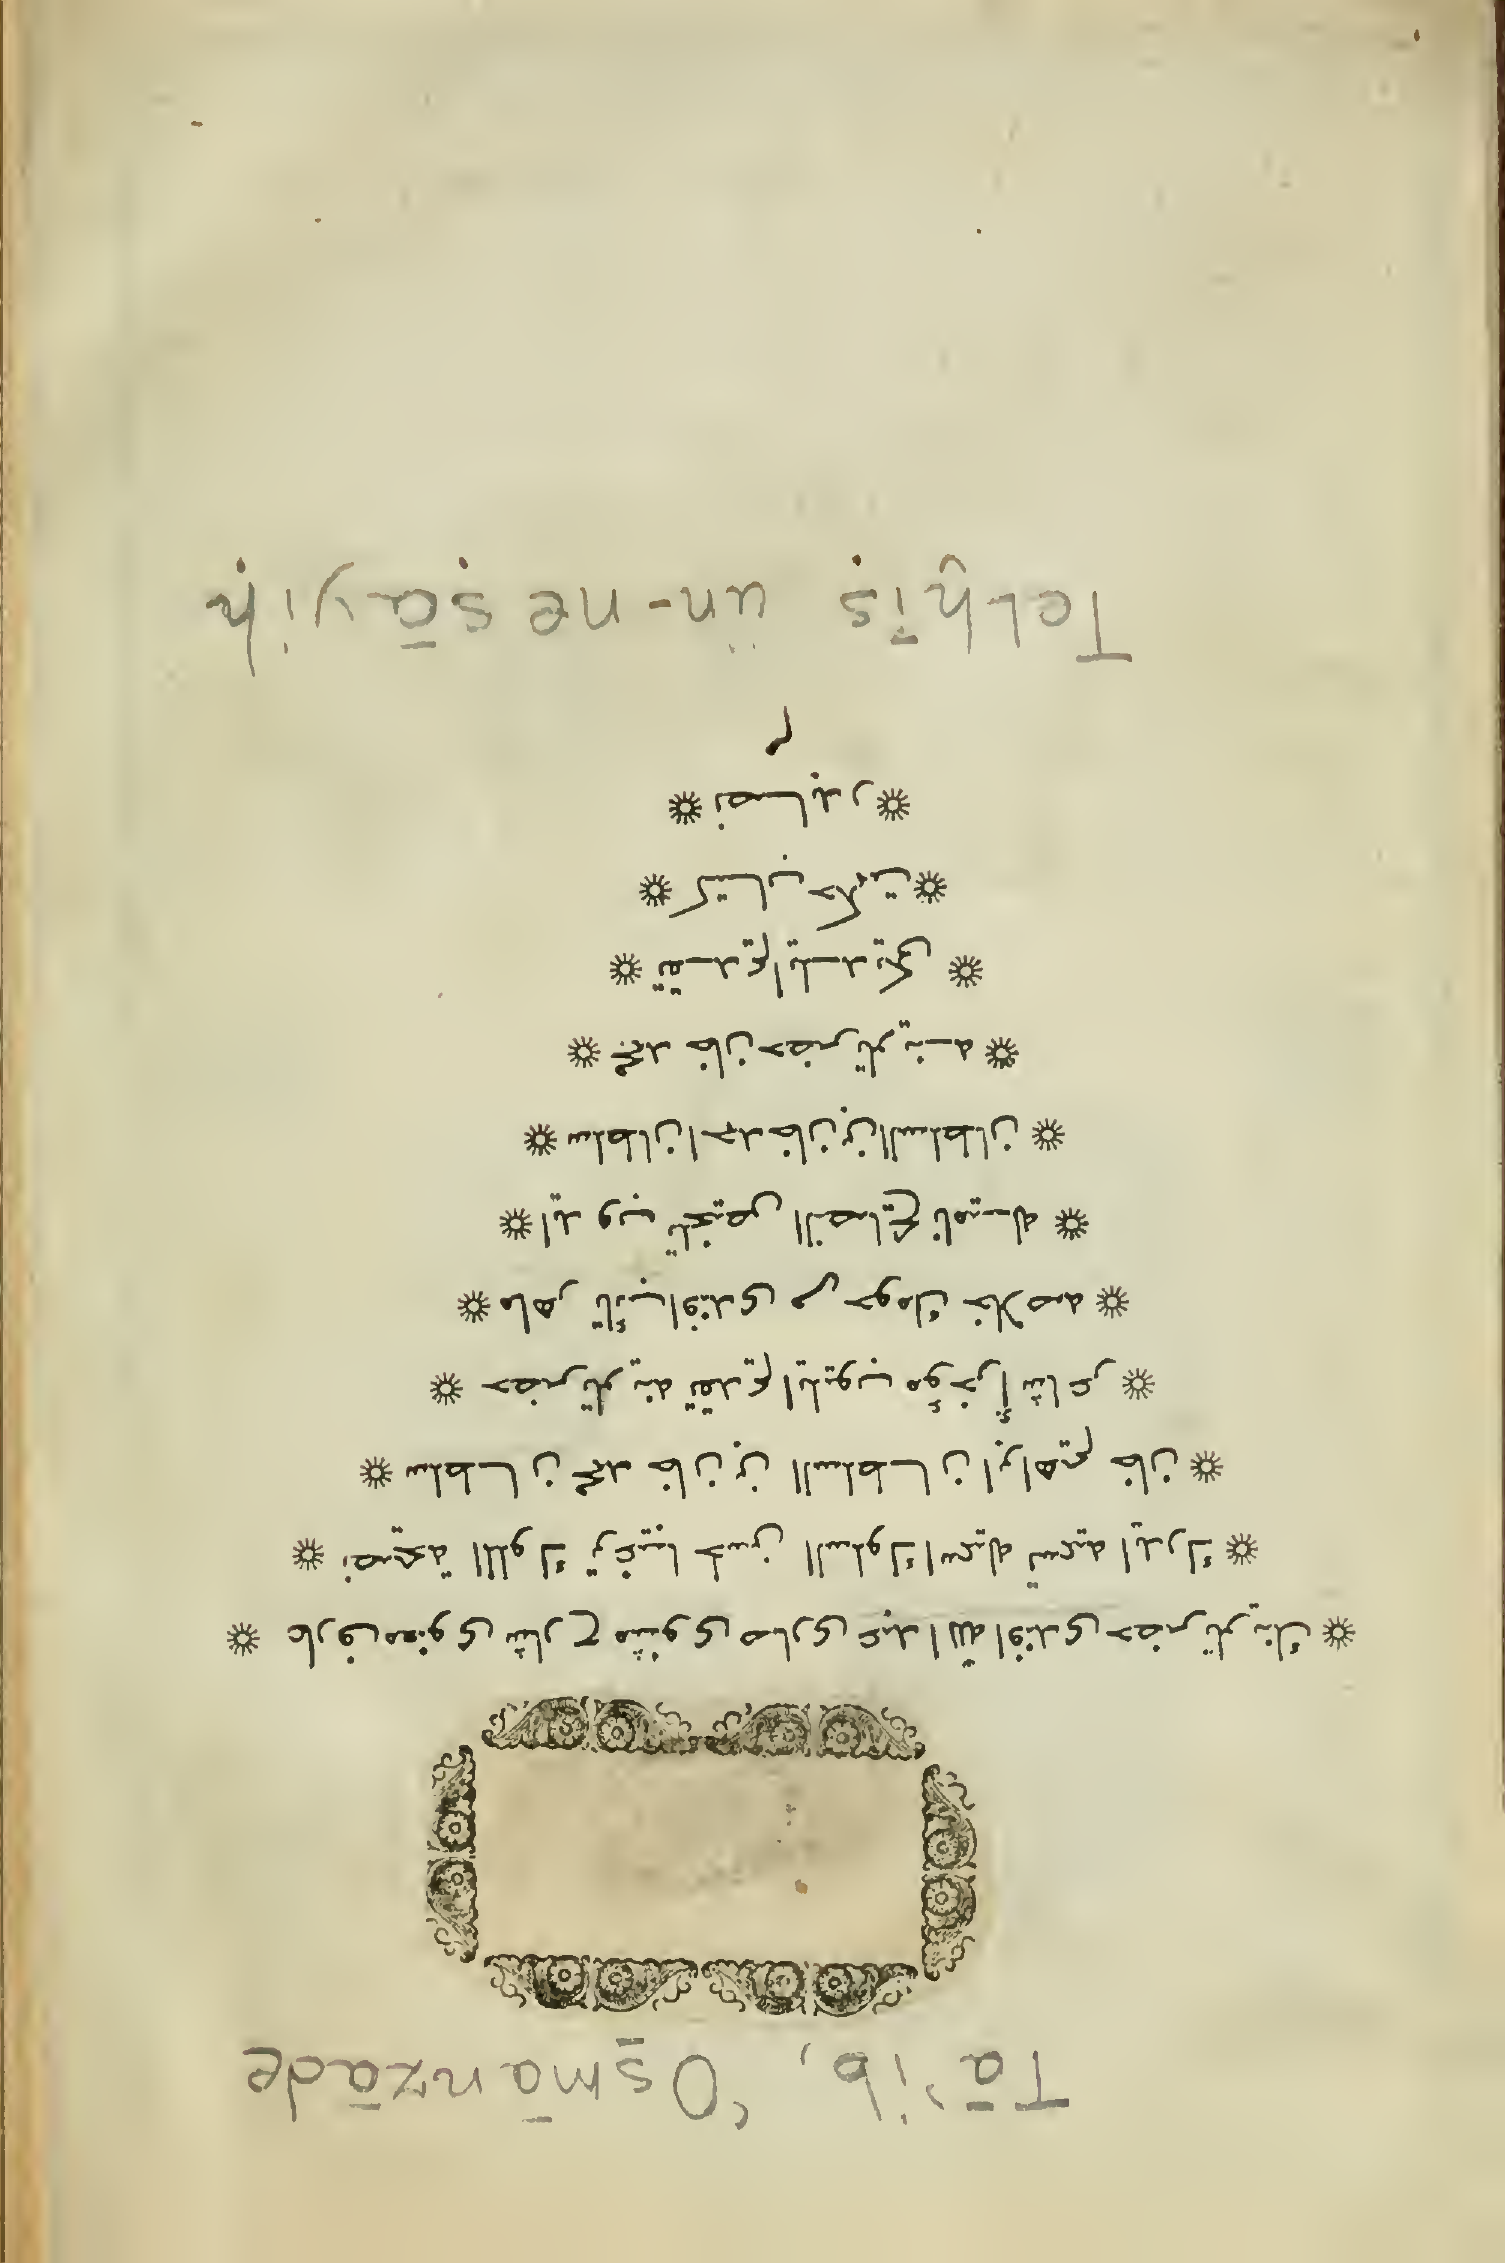 Ṭā'ib, ʻOs̱mānzāde
❋ عارف معنوی شارح مثنوی صاری عبد الله افندی حضرتلرینك ❋
❋ نصیحة الملوك ترغیبا لحسن السلوك اسمیله تسمیه ایدرك ❋
❋ سلطان محمد خان بن السلطان ابراهیم خان ❋
❋ حضرتلرینه تقدیم ایلیوب مؤخرا شاعر ❋
❋ ماهر تائب افندی مرحومك خلاصه ❋
❋ ایدوب تلخیص النصایح نامیله ❋
❋ سلطان احمد خان بن السلطان ❋
❋ محمد خان حضرتلرینه ❋
❋ تقدیم ایلدیکی ❋
❋ کتاب حکمت ❋
❋ نصابدر ❋
م
Telḫīṣ ün-neṣāyiḥ